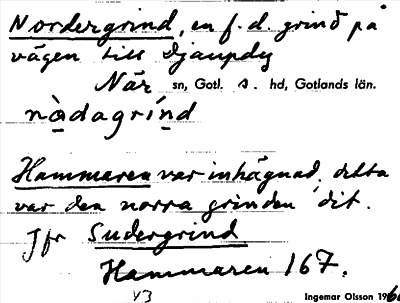 Nordergrind, en f.d. grind på
vägen till Djaupdy
När sn, Gotl. s. hd, Gotlands län.
nòdagrínd
Hammaren var inhägnad, detta
var den norra grinden dit.
Jfr Sudergrind
Hammaren 167.
Ingemar Olsson 196